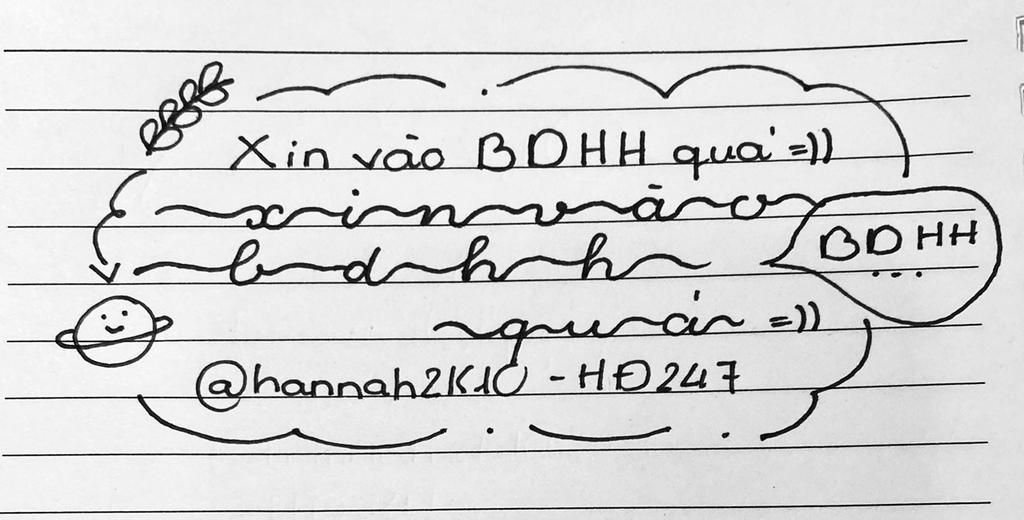 Xin vào BDHH quá =))
xin vào
BDHH
...
bdhh
quá =))
@hannah2K10 - HĐ247